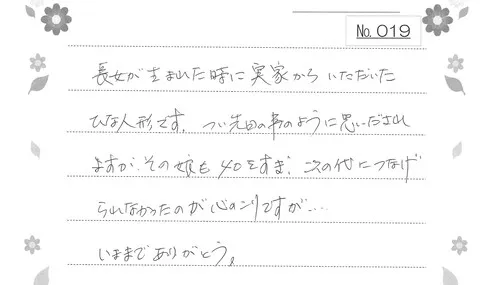 No.019
長女が生まれた時に実家からいただいた
ひな人形です。つい先日の事のように思いだされ
ますが、その娘も40をすぎ、次の代につなげ
られなかったのが心のこりですが…
いままでありがとう。